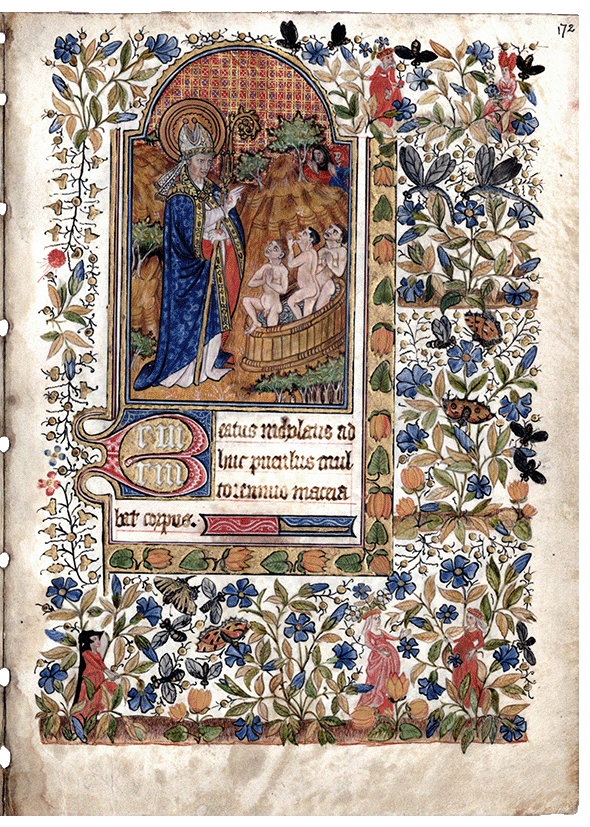 172
Beatus nicholaus ad
huc puerulus mul
to ieiunio macera
bat corpus.